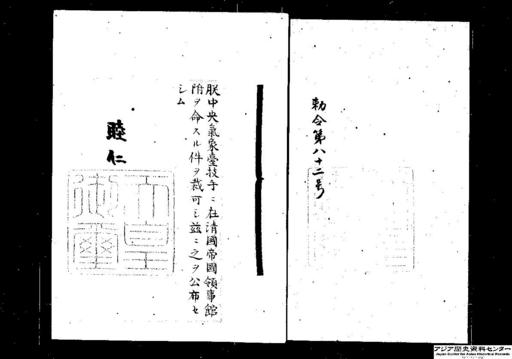 勅令第八十二号
朕中央氣象臺技手ニ在清國帝國領事館
附ヲ命スル件ヲ裁可シ茲ニ之ヲ公布セ
シム
睦仁
天皇
御璽
アジア歴史資料センター
Japan Center for Asian Historical Records